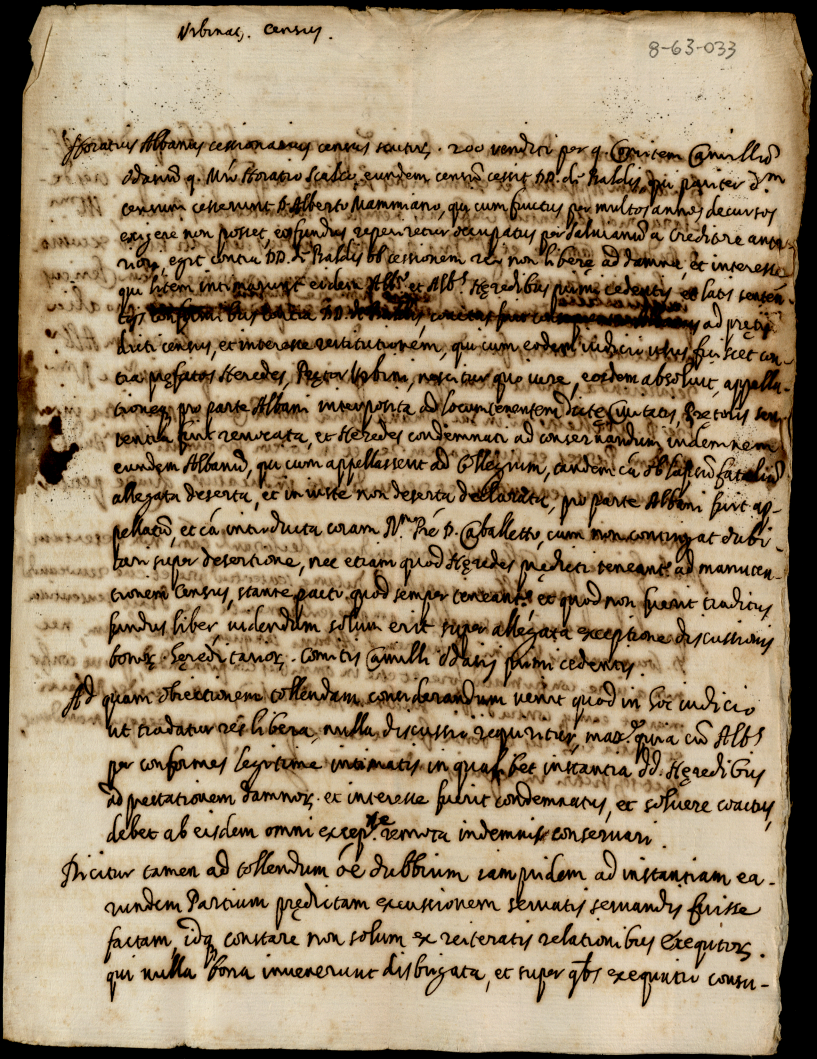 Urbinat. Census.
8-63-033
Horatius Albanus cessionarius census scutor. 200 venditi per q. Comitem Camillū
Odasiū q. Horatio Scalco, eundem censū cessit DD. de Baldis, qui pariter dm
censum cesserunt D. Alberto Mammiano, qui cum fructus per multos annos decursos
exigere non posset, eo fundus reperiretur occupatus per Salvianū a creditore ante-
riori, egit contra DD. de Baldis ob cessionem rei non liberę ad damna, et interesse
qui litem intimarunt eidem Albo. et Albs Hęredibus primi cedentis et latis senten-
tijs conformibus contra DD. de Baldis ad prętij
dicti census, et interesse restitutionem, qui cum eodem iudicio usus fuisset con-
tra pręfatos Heredes, Pretor Urbini, nescitur quo iure, eosdem absoluit, appella-
tione pro parte Albani interposita ad locumtenentem dictę Civitatis, Pretoris sen-
tentia fuit revocata, et Heredes condemnati ad conservandum indemnem
eundem Albanū, qui cum appellassent ad Collegium, tandem cā ob lapsū fataliū
allegata deserta, et iniuste non deserta declarata, pro parte Albani fuit ap-
pellatū, et cā introducta coram R. Pre D. Caballetto, cum non contingat dubi-
tari super desertione, nec etiam quod Hęredes prędicti teneant. ad manuten-
tionem Census, stante pacto quod semper teneant., et quod non fuerit traditus
fundus liber videndum solum erit super allegata exceptione discussionis
bonor. heredi tarior. Comitis Camilli Odasij primi cedentis.
Ad quam obiectionem tollendam considerandum venit quod in hoc iudicio
ut tradatur res libera, nulla discussio requiritur, max. quia cū Albs
per conformes legitime intimatis in qualibet instantia dd. Hęredibus
ad prestationem damnor. et interesse fuerit condemnatus, et solvere coactus,
debet ab eisdem omni excep.ne remota indemnis conservari.
Dicitur tamen ad tollendum oē dubbium iampridem ad instantiam ea-
rundem Partium prędictam excussionem servatis servandis fuisse
factam, idq constare non solum ex reiteratis relationibus Exequtor.
qui nulla bona invenerunt disbrigata, et super qbs exequutio consu-